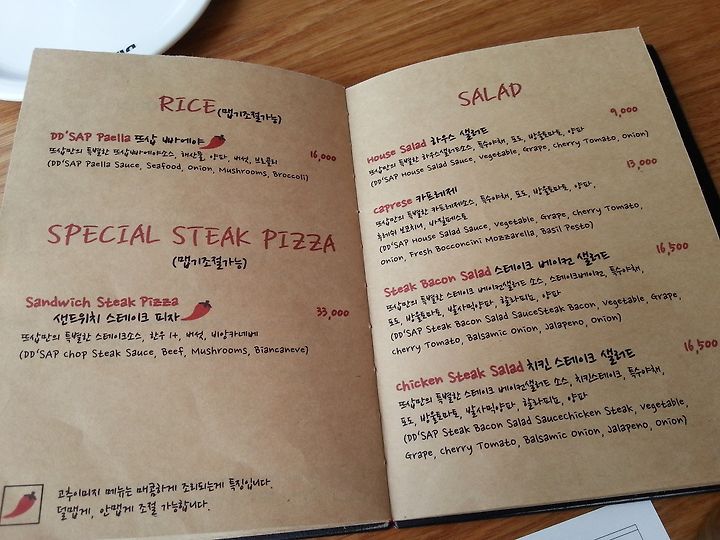 RICE (맵기조절가능)
DD'SAP Paella 뜨삽 빠에야
뜨삽만의 특별한 뜨삽빠에야소스, 해산물, 양파, 버섯, 브로콜리 16,000
(DD'SAP Paella Sauce, Seafood, Onion, Mushrooms, Broccoli)
SPECIAL STEAK PIZZA
(맵기조절가능)
Sandwich Steak Pizza
샌드위치 스테이크 피자 33,000
뜨삽만의 특별한 스테이크소스, 한우 1+, 버섯, 비앙카네베
(DD'SAP Chop Steak Sauce, Beef, Mushrooms, Biancaneve)
고추이미지 메뉴는 매콤하게 조리되는게 특징입니다.
덜맵게, 안맵게 조절 가능합니다.
SALAD
House Salad 하우스 샐러드 9,000
뜨삽만의 특별한 하우스샐러드소스, 특수야채, 포도, 방울토마토, 양파
(DD'SAP House Salad Sauce, Vegetable, Grape, Cherry Tomato, Onion)
Caprese 카프레제 13,000
뜨삽만의 특별한 카프레제소스, 특수야채, 포도, 방울토마토, 양파,
후레쉬 보코치니, 바질페스토
(DD'SAP House Salad Sauce, Vegetable, Grape, Cherry Tomato,
Onion, Fresh Bocconcini Mozzarella, Basil Pesto)
Steak Bacon Salad 스테이크 베이컨 샐러드 16,500
뜨삽만의 특별한 스테이크 베이컨샐러드 소스, 스테이크베이컨, 특수야채,
포도, 방울토마토, 발사믹양파, 할라피뇨, 양파
(DD'SAP Steak Bacon Salad SauceSteak Bacon, Vegetable, Grape,
Cherry Tomato, Balsamic Onion, Jalapeno, Onion)
Chicken Steak Salad 치킨 스테이크 샐러드 16,500
뜨삽만의 특별한 스테이크 베이컨샐러드 소스, 치킨스테이크, 특수야채,
포도, 방울토마토, 발사믹양파, 할라피뇨, 양파
(DD'SAP Steak Bacon Salad Saucechicken Steak, Vegetable,
Grape, Cherry Tomato, Balsamic Onion, Jalapeno, Onion)